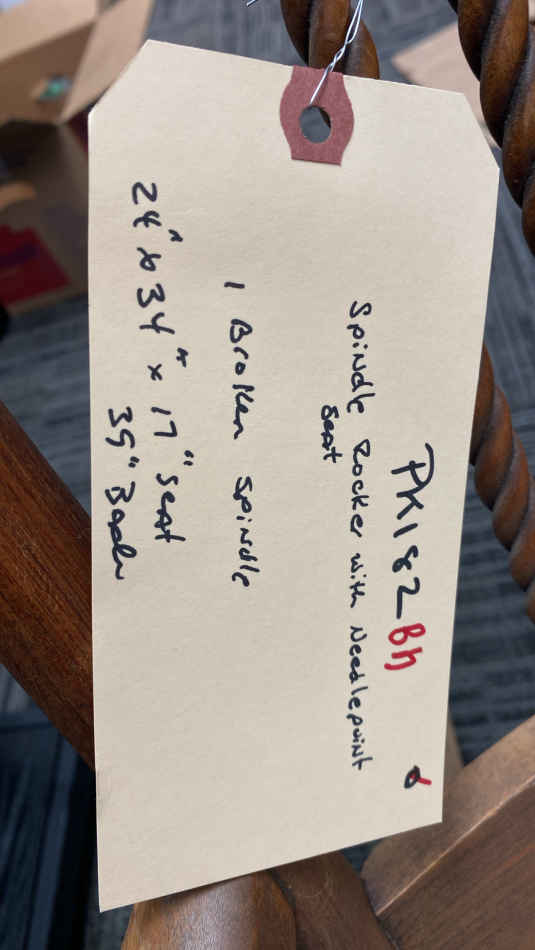 PK182 Bh
Spindle Rocker with Needlepoint
Seat
1 Broken Spindle
24" x 34" x 17" Seat
39" Back